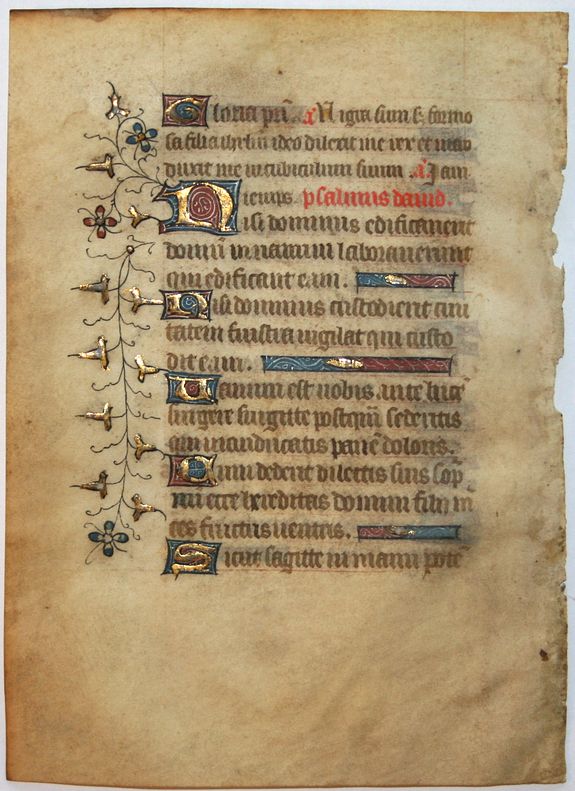 Gloria pr̄i. a Nigra sum & formo
sa filia ihrlm ideo dilexit me rex et intro
duxit me in cubiculum suum. a Jam
hiemps. psalmus david.
Nisi dominus edificaverit
domū in vanum laboraverunt
qui edificant eam.
Nisi dominus custodierit civi
tatem frustra vigilat qui custo
dit eam.
Vanum est vobis ante lucē
surgere surgitte postq̄m sederitis
qui manducatis panē doloris.
Cum dederit dilectis suis sop̄
num ecce hereditas domini filii m
ces fructus ventris.
Sicut sagitte in manu potē